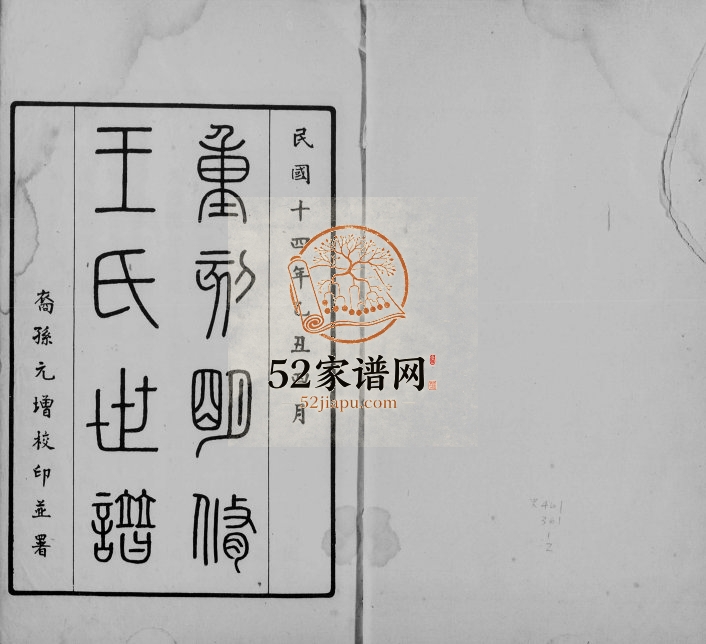 民國十四年乙丑四月
重刻明脩
王氏世譜
裔孫元增校印並署
52家谱网
52jiapu.com